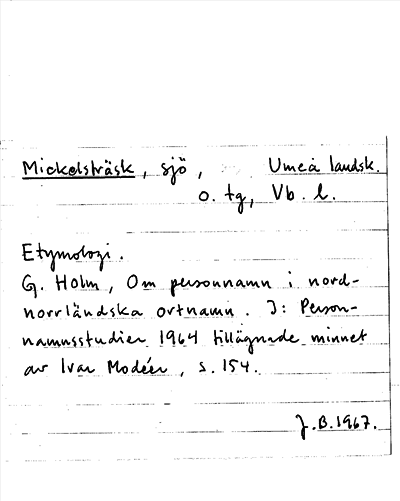 Mickelsträsk, sjö, Umeå landsk.
o. tg, Vb. l.
Etymologi.
G. Holm, Om personnamn i nord-
norrländska ortnamn. I: Person-
namnsstudier 1964 tillägnade minnet
av Ivar Modéer, s. 154.
J.B.1967.